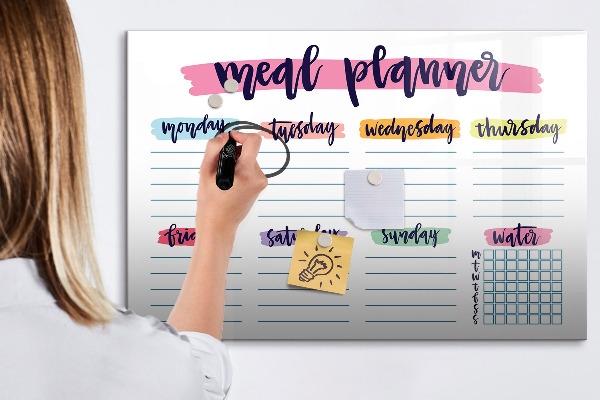 meal planner
monday tuesday wednesday thursday
saturday sunday water
m
t
w
t
f
s
s